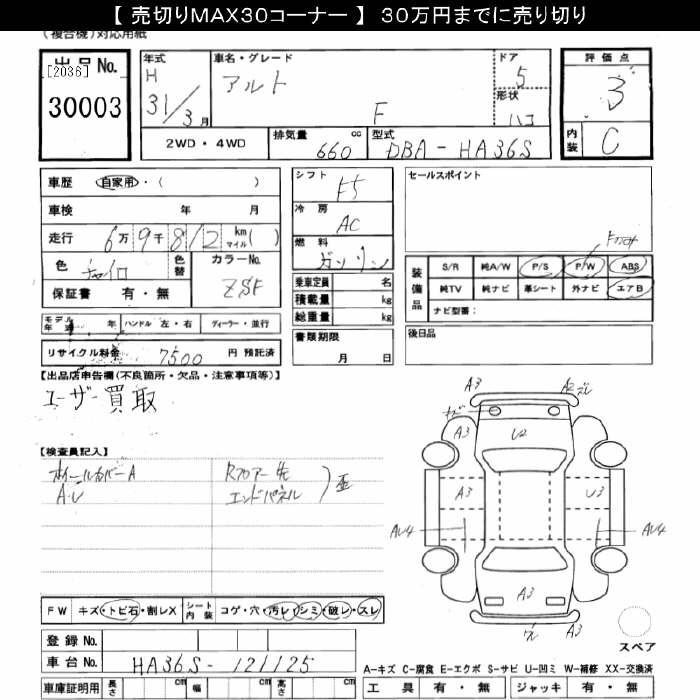 【 売切りMAX30コーナー 】 30万円までに売り切り
(複合機)対応用紙
出品No.
[2036]
30003
年式
H
31/3月
車名・グレード
アルト
F
ドア
5
形状
ハコ
評価点
3
内装
C
2WD・4WD
排気量
660 cc
型式
DBA-HA36S
車歴 自家用・( )
車検 年 月
走行 6万9千812 km マイル( )
色 チャイロ
色替
カラーNo.
ZSF
保証書 有・無
シフト
F5
冷房
AC
燃料
ガソリン
乗車定員 名
積載量 kg
総重量 kg
セールスポイント
装備品
S/R 純A/W P/S P/W ABS
純TV 純ナビ 革シート 外ナビ エアB
ナビ型番:
モデル年式 年 ハンドル 左・右 ディーラー・並行
リサイクル料金 7500 円 預託済
書類期限
月 日
後日品
【出品店申告欄(不良箇所・欠品・注意事項等)】
ユーザー買取
【検査員記入】
ホイールカバーA
A.U
Rフロアー先
エンドパネル
) 歪
A3
A2ズレ
キズ
A3
U2
A3
U3
AU4
AU4
A3
ワレ
A3
スペア
FW キズ・トビ石・割レX
シート内装 コゲ・穴・汚レ・シミ・破レ・スレ
登録No.
車台No. HA36S-121125
車庫証明用 長さ cm 幅 cm 高さ cm
A-キズ C-腐食 E-エクボ S-サビ U-凹ミ W-補修 XX-交換済
工具 有・無 ジャッキ 有・無